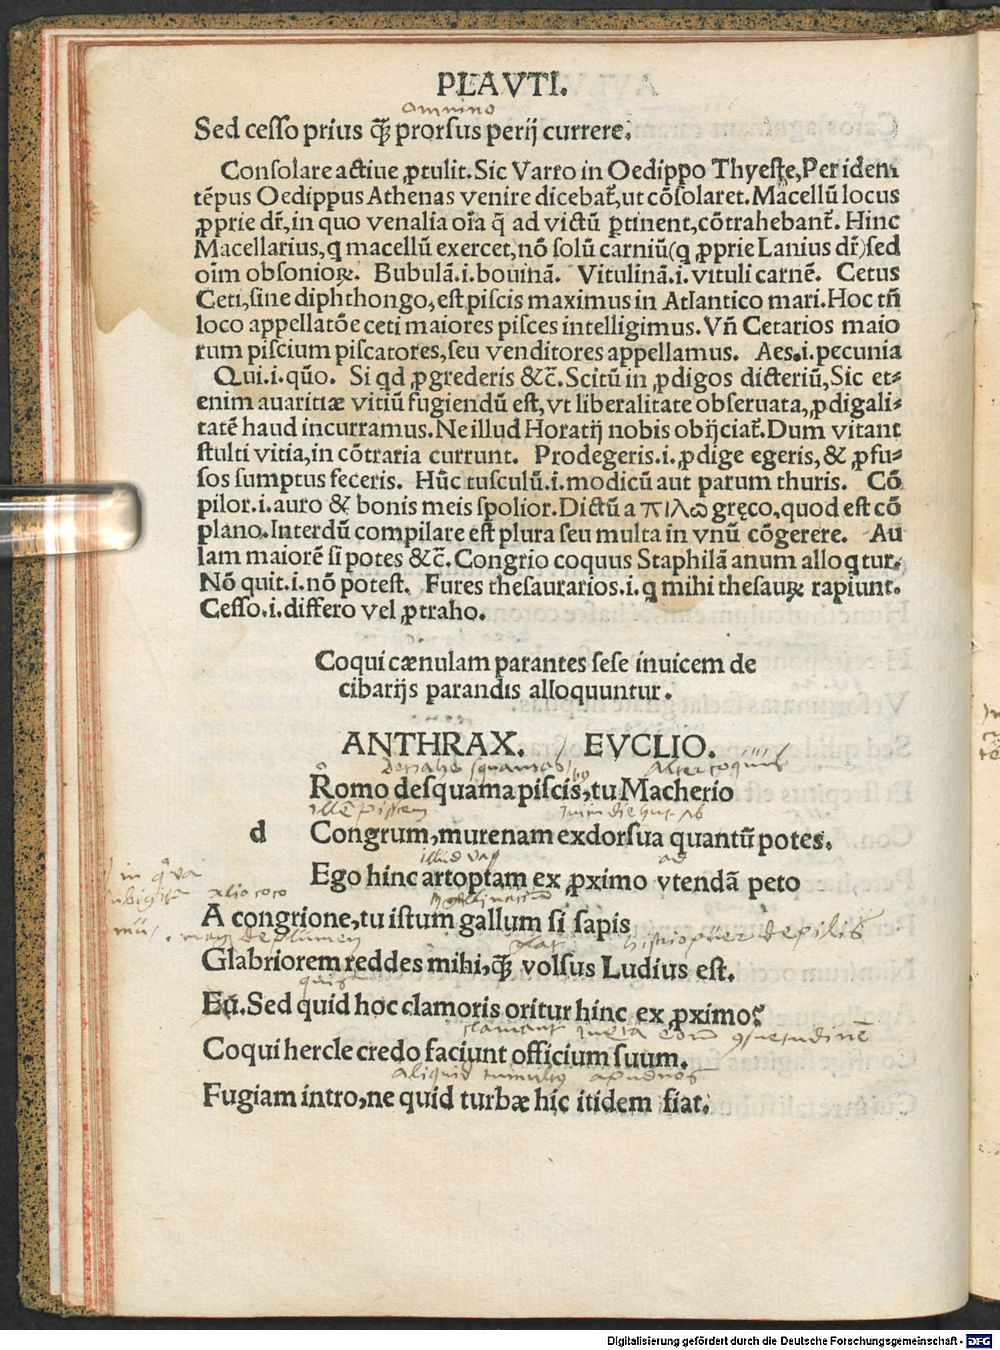 PLAVTI.
omnino
Sed cesso prius ꝙ̃ prorsus perij currere.
Consolare actiue ꝓtulit. Sic Varro in Oedippo Thyeste, Per idem
tẽpus Oedippus Athenas venire dicebat̃, ut cõsolaret. Macellũ locus
ꝓprie dr̃, in quo venalia oĩa q̃ ad victũ ꝑtinent, cõtrahebant̃. Hinc
Macellarius, q macellũ exercet, nõ solũ carniũ (q ꝓprie Lanius dr̃) sed
oĩm obsonioꝝ. Bubulã.i.bouinã. Vitulinã.i.vituli carnẽ. Cetus
Ceti, sine diphthongo, est piscis maximus in Atlantico mari. Hoc tñ
loco appellatõe ceti maiores pisces intelligimus. Vñ Cetarios maio
rum piscium piscatores, seu venditores appellamus. Aes.i.pecunia
Qui.i.quõ. Si qd ꝓgrederis &c̃. Scitũ in ꝓdigos dicteriũ, Sic et-
enim auaritiæ vitiũ fugiendũ est, vt liberalitate obseruata, ꝓdigali-
tatẽ haud incurramus. Ne illud Horatij nobis obijciat̃. Dum vitant
stulti vitia, in cõtraria currunt. Prodegeris.i.ꝓdige egeris, & ꝓfu-
sos sumptus feceris. Hũc tusculũ.i.modicũ aut parum thuris. Cõ
pilor.i.auro & bonis meis spolior. Dictũ a πιλῶ gręco, quod est cõ
plano. Interdũ compilare est plura seu multa in vnũ cõgerere. Au
lam maiorẽ si potes &c̃. Congrio coquus Staphilã anum alloq tur.
Nõ quit.i.nõ potest. Fures thesaurarios.i.q mihi thesauꝝ rapiunt.
Cesso.i.differo vel ꝓtraho.
Coqui cænulam parantes sese inuicem de
cibarijs parandis alloquuntur.
ANTHRAX. EVCLIO.
squamas alter coquus
Romo desquama piscis, tu Macherio
illẽ piscem
d Congrum, murenam exdorsua quantũ potes.
illud vas ad
Ego hinc artoptam ex ꝓximo vtendã peto
alio coco
A congrione, tu istum gallum si sapis
deplumem histrio puer depilis
Glabriorem reddes mihi, ꝙ̃ volsus Ludius est.
quis
Eũ. Sed quid hoc clamoris oritur hinc ex ꝓximo?
clamant iuxta
Coqui hercle credo faciunt officium suum.
aliquid apud nos
Fugiam intro, ne quid turbæ hic itidem fiat.
Digitalisierung gefördert durch die Deutsche Forschungsgemeinschaft - DFG